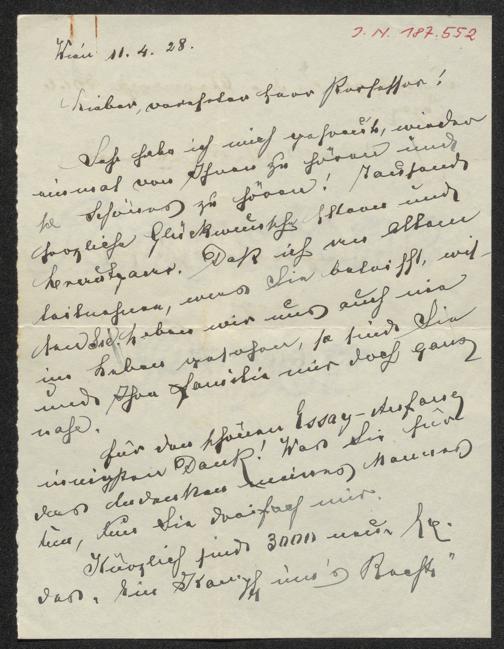 J. N. 187.552
Wien 11. 4. 28.
Lieber, verehrter Herr Professor!
Sehr habe ich mich gefreut, wieder
einmal von Ihnen zu hören und
so Schönes zu hören! Tausend
herzliche Glückwünsche Eltern und
Brautpaar. Daß ich an allem
teilnehme, was Sie betrifft, wis-
sen Sie, haben wir uns auch nie
im Leben gesehen, so sind Sie
und Ihre Familie mir doch ganz
nahe.
Für den schönen Essay-Anfang
innigsten Dank! Was Sie für
das Andenken meines Mannes
tun, tun Sie dreifach mir.
Kürzlich sind 3000 neue Ex.
des „Ein Kampf um's Recht"